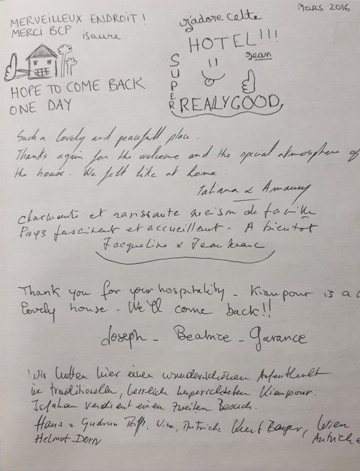 MARS 2016
MERVEILLEUX ENDROIT!
MERCI BCP
HOPE TO COME BACK
ONE DAY
j'adore cette
HOTEL!!!
Jean
SUPER
REALYGOOD
Such a lovely and peacefull place.
Thanks again for the welcome and the special atmosphere of
the house. We felt like at home.
Tatiana & Amaury
charmante et ravissante maison de famille
Pays fascinant et accueillant. A bientot
Jacqueline & Jean Marc
Thank you for your hospitality - Kianpour is a
lovely house. We'll come back!!
Joseph - Beatrice - Garance
Wir hatten hier einen wunderschönen Aufenthalt
im traditionellen, herrlich hergerichteten Kianpour.
Isfahan verdient einen zweiten Besuch.
Hans & Gudrun Wien
Helmut